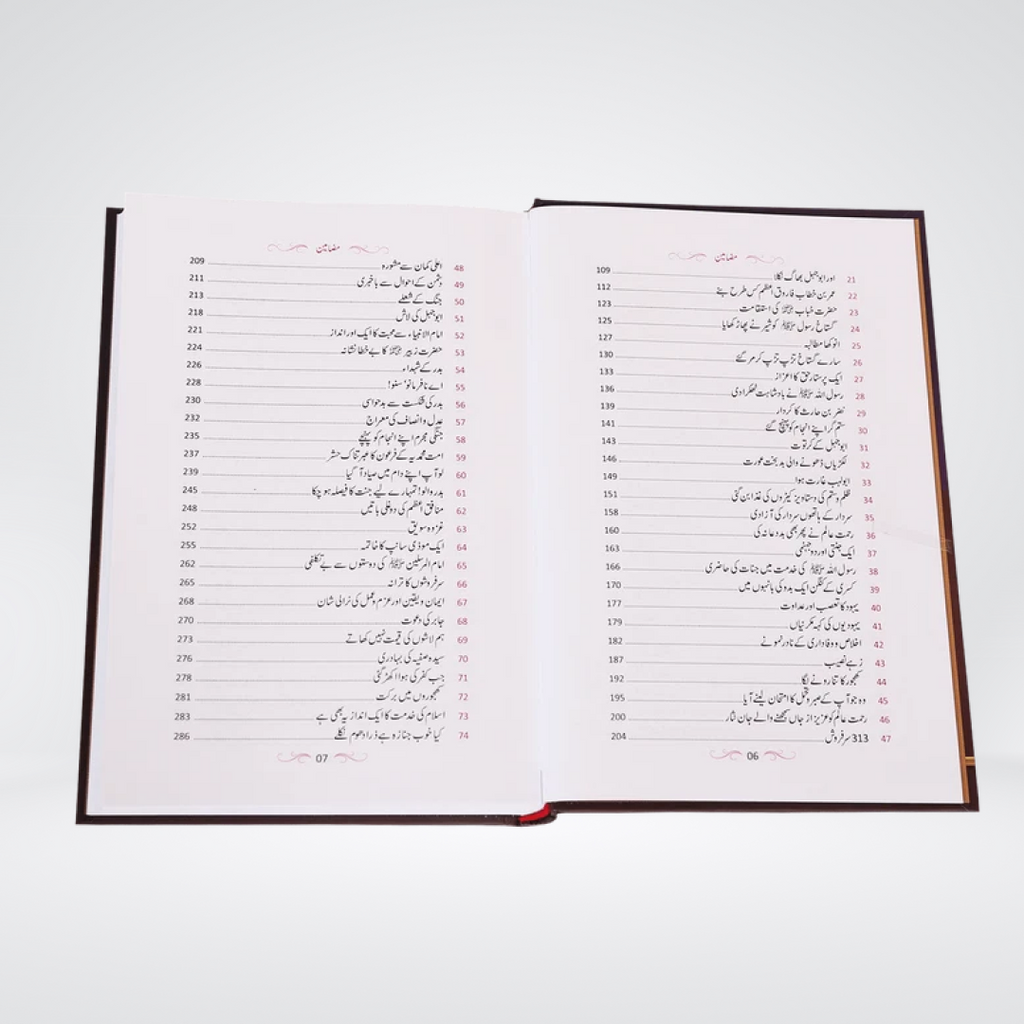 مضامین
21 اور ابوجہل بھاگ نکلا 109
22 عمر بن خطاب فاروق اعظم کس طرح بنے 112
23 حضرت خباب رضی اللہ عنہ کی استقامت 123
24 گستاخ رسول ﷺ کو شیر نے پھاڑ کھایا 125
25 انوکھا مطالبہ 127
26 سارے گستاخ تڑپ تڑپ کر مر گئے 130
27 ایک پرستار حق کا اعزاز 133
28 رسول اللہ ﷺ نے بادشاہت ٹھکرا دی 136
29 نضر بن حارث کا کردار 139
30 ستم گر اپنے انجام کو پہنچ گئے 141
31 ابوجہل کے کرتوت 143
32 لکڑیاں ڈھونے والی بدبخت عورت 146
33 ابولہب غارت ہوا 149
34 ظلم و ستم کی دستاویز کیڑوں کی غذا بن گئی 151
35 سردار کے ہاتھوں سردار کی آزادی 158
36 رحمت عالم نے پھر بھی بددعا نہ کی 160
37 ایک جنتی اور دو جہنمی 163
38 رسول اللہ ﷺ کی خدمت میں جنات کی حاضری 166
39 کسریٰ کے کنگن ایک بدو کی بانہوں میں 170
40 یہود کا تعصب اور عداوت 177
41 یہودیوں کی کہہ مکرنیاں 179
42 اخلاص و وفاداری کے نادر نمونے 182
43 زہے نصیب 187
44 کھجور کا تنا رونے لگا 192
45 وہ جو آپ کے صبر و تحمل کا امتحان لینے آیا 195
46 رحمت عالم کو عزیز از جاں سمجھنے والے جان نثار 200
47 313 سرفروش 204
06
مضامین
48 اعلیٰ کمان سے مشورہ 209
49 دشمن کے احوال سے باخبری 211
50 جنگ کے شعلے 213
51 ابوجہل کی لاش 218
52 امام الانبیاء سے محبت کا ایک اور انداز 221
53 حضرت زبیر رضی اللہ عنہ کا بے خطا نشانہ 224
54 بدر کے شہداء 226
55 اے نافرمانو! سنو! 228
56 بدر کی شکست سے بدحواسی 230
57 عدل و انصاف کی معراج 232
58 جنگی مجرم اپنے انجام کو پہنچے 235
59 امت محمدیہ کے فرعون کا عبرتناک حشر 237
60 لو آپ اپنے دام میں صیاد آ گیا 239
61 بدر والو! تمہارے لیے جنت کا فیصلہ ہو چکا 245
62 منافق اعظم کی دوغلی باتیں 248
63 غزوہ سویق 252
64 ایک موذی سانپ کا خاتمہ 255
65 امام المرسلین ﷺ کی دوستوں سے بے تکلفی 262
66 سرفروشوں کا ترانہ 265
67 ایمان و یقین اور عزم و عمل کی نرالی شان 268
68 جابر کی دعوت 270
69 ہم لاشوں کی قیمت نہیں کھاتے 273
70 سیدہ صفیہ کی بہادری 276
71 جب کفر کی ہوا اکھڑ گئی 278
72 کھجوروں میں برکت 281
73 اسلام کی خدمت کا ایک انداز یہ بھی ہے 283
74 کیا خوب جنازہ ہے ذرا دھوم نکلے 286
07